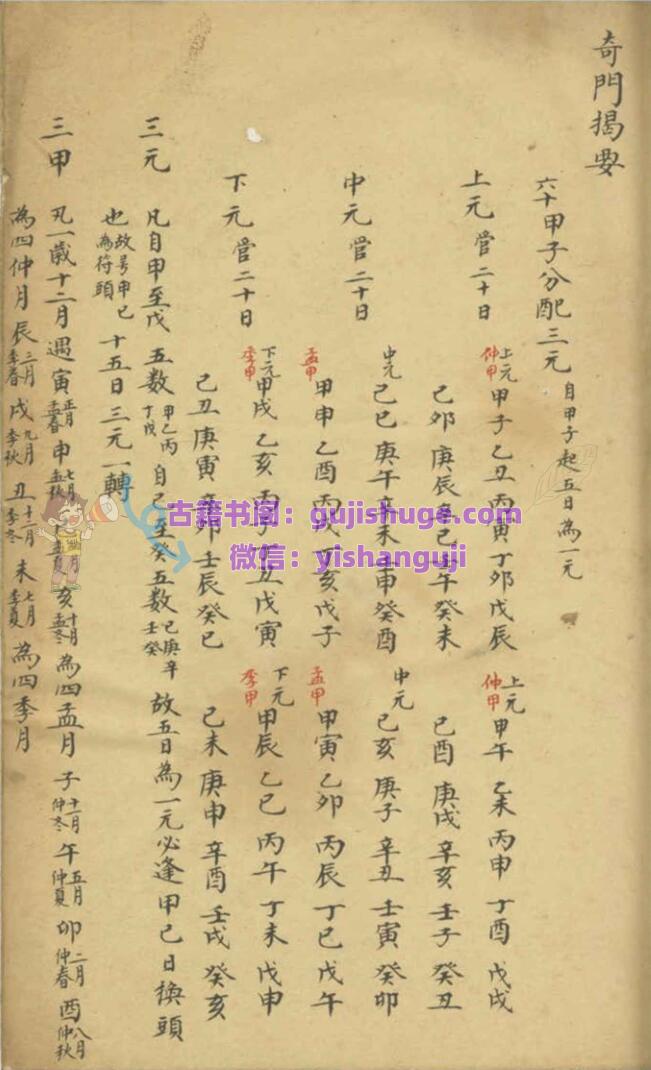 奇門揭要
六十甲子分配三元 自甲子起五日為一元
上元管二十日
上元 仲甲 甲子 乙丑 丙寅 丁卯 戊辰
上元 仲甲 甲午 乙未 丙申 丁酉 戊戌
己卯 庚辰 辛巳 壬午 癸未
己酉 庚戌 辛亥 壬子 癸丑
中元管二十日
中元 己巳 庚午 辛未 壬申 癸酉
中元 己亥 庚子 辛丑 壬寅 癸卯
孟甲 甲申 乙酉 丙戌 丁亥 戊子
孟甲 甲寅 乙卯 丙辰 丁巳 戊午
下元管二十日
下元 季甲 甲戌 乙亥 丙子 丁丑 戊寅
下元 季甲 甲辰 乙巳 丙午 丁未 戊申
己丑 庚寅 辛卯 壬辰 癸巳
己未 庚申 辛酉 壬戌 癸亥
三元 凡自甲至戊五數 甲乙丙丁戊 自己至亥五數 己庚辛壬癸 故五日為一元必逢甲己日換頭
也 故号甲己為符頭 十五日三元一轉
三甲 凡一歲十二月遇寅 正月孟春 申 七月孟秋 亥 十月孟冬 為四孟月 子 十一月仲冬 午 五月仲夏 卯 二月仲春 酉 八月仲秋
為四仲月 辰 三月季春 戌 九月季秋 丑 十二月季冬 未 七月季夏 為四季月
古籍书阁：gujishuge.com
微信：yishanguji